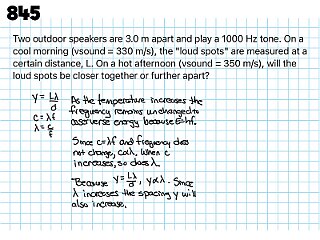 845
Two outdoor speakers are 3.0 m apart and play a 1000 Hz tone. On a
cool morning (vsound = 330 m/s), the "loud spots" are measured at a
certain distance, L. On a hot afternoon (vsound = 350 m/s), will the
loud spots be closer together or further apart?
y = Lλ/d
c = λf
λ = c/f
As the temperature increases the
frequency remains unchanged to
conserve energy because E=hf.
Since c=λf and frequency does
not change, cαλ. When c
increases, so does λ.
Because y = Lλ/d, yαλ. Since
λ increases the spacing y will
also increase.